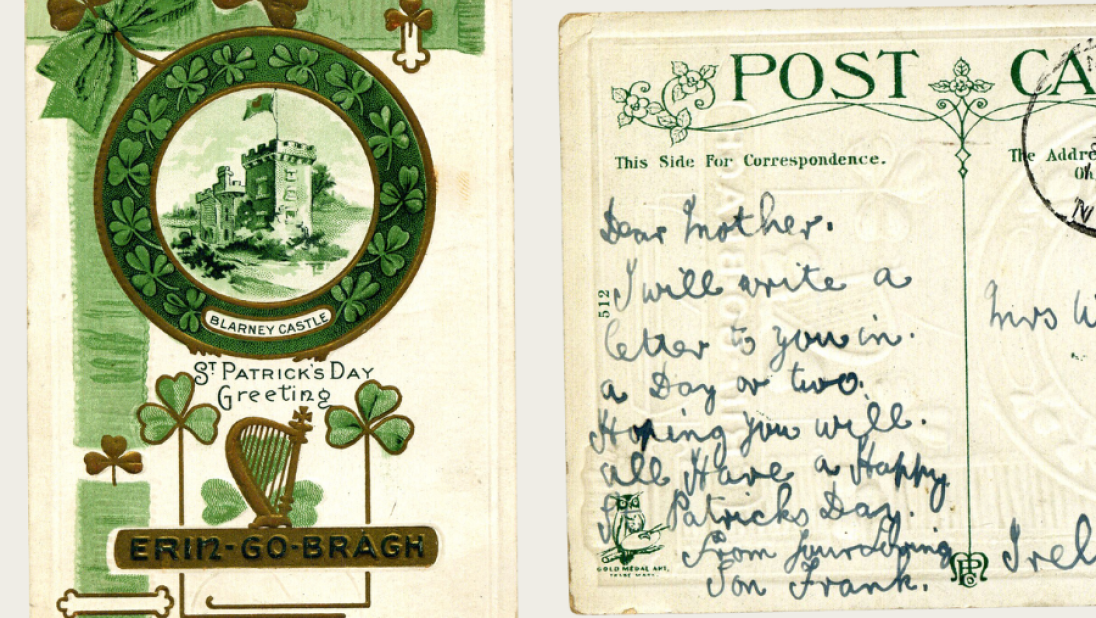 BLARNEY CASTLE
ST PATRICK'S DAY
Greeting
ERIN-GO-BRAGH
POST CA
This Side For Correspondence.
The Addre
On
N
512
Dear Mother.
I will write a
letter to you in.
a Day or two.
Hoping you will.
all Have a Happy
St Patricks Day.
From your loving
Son Frank.
Mrs W
Irel
GOLD MEDAL ART.
TRADE MARK.